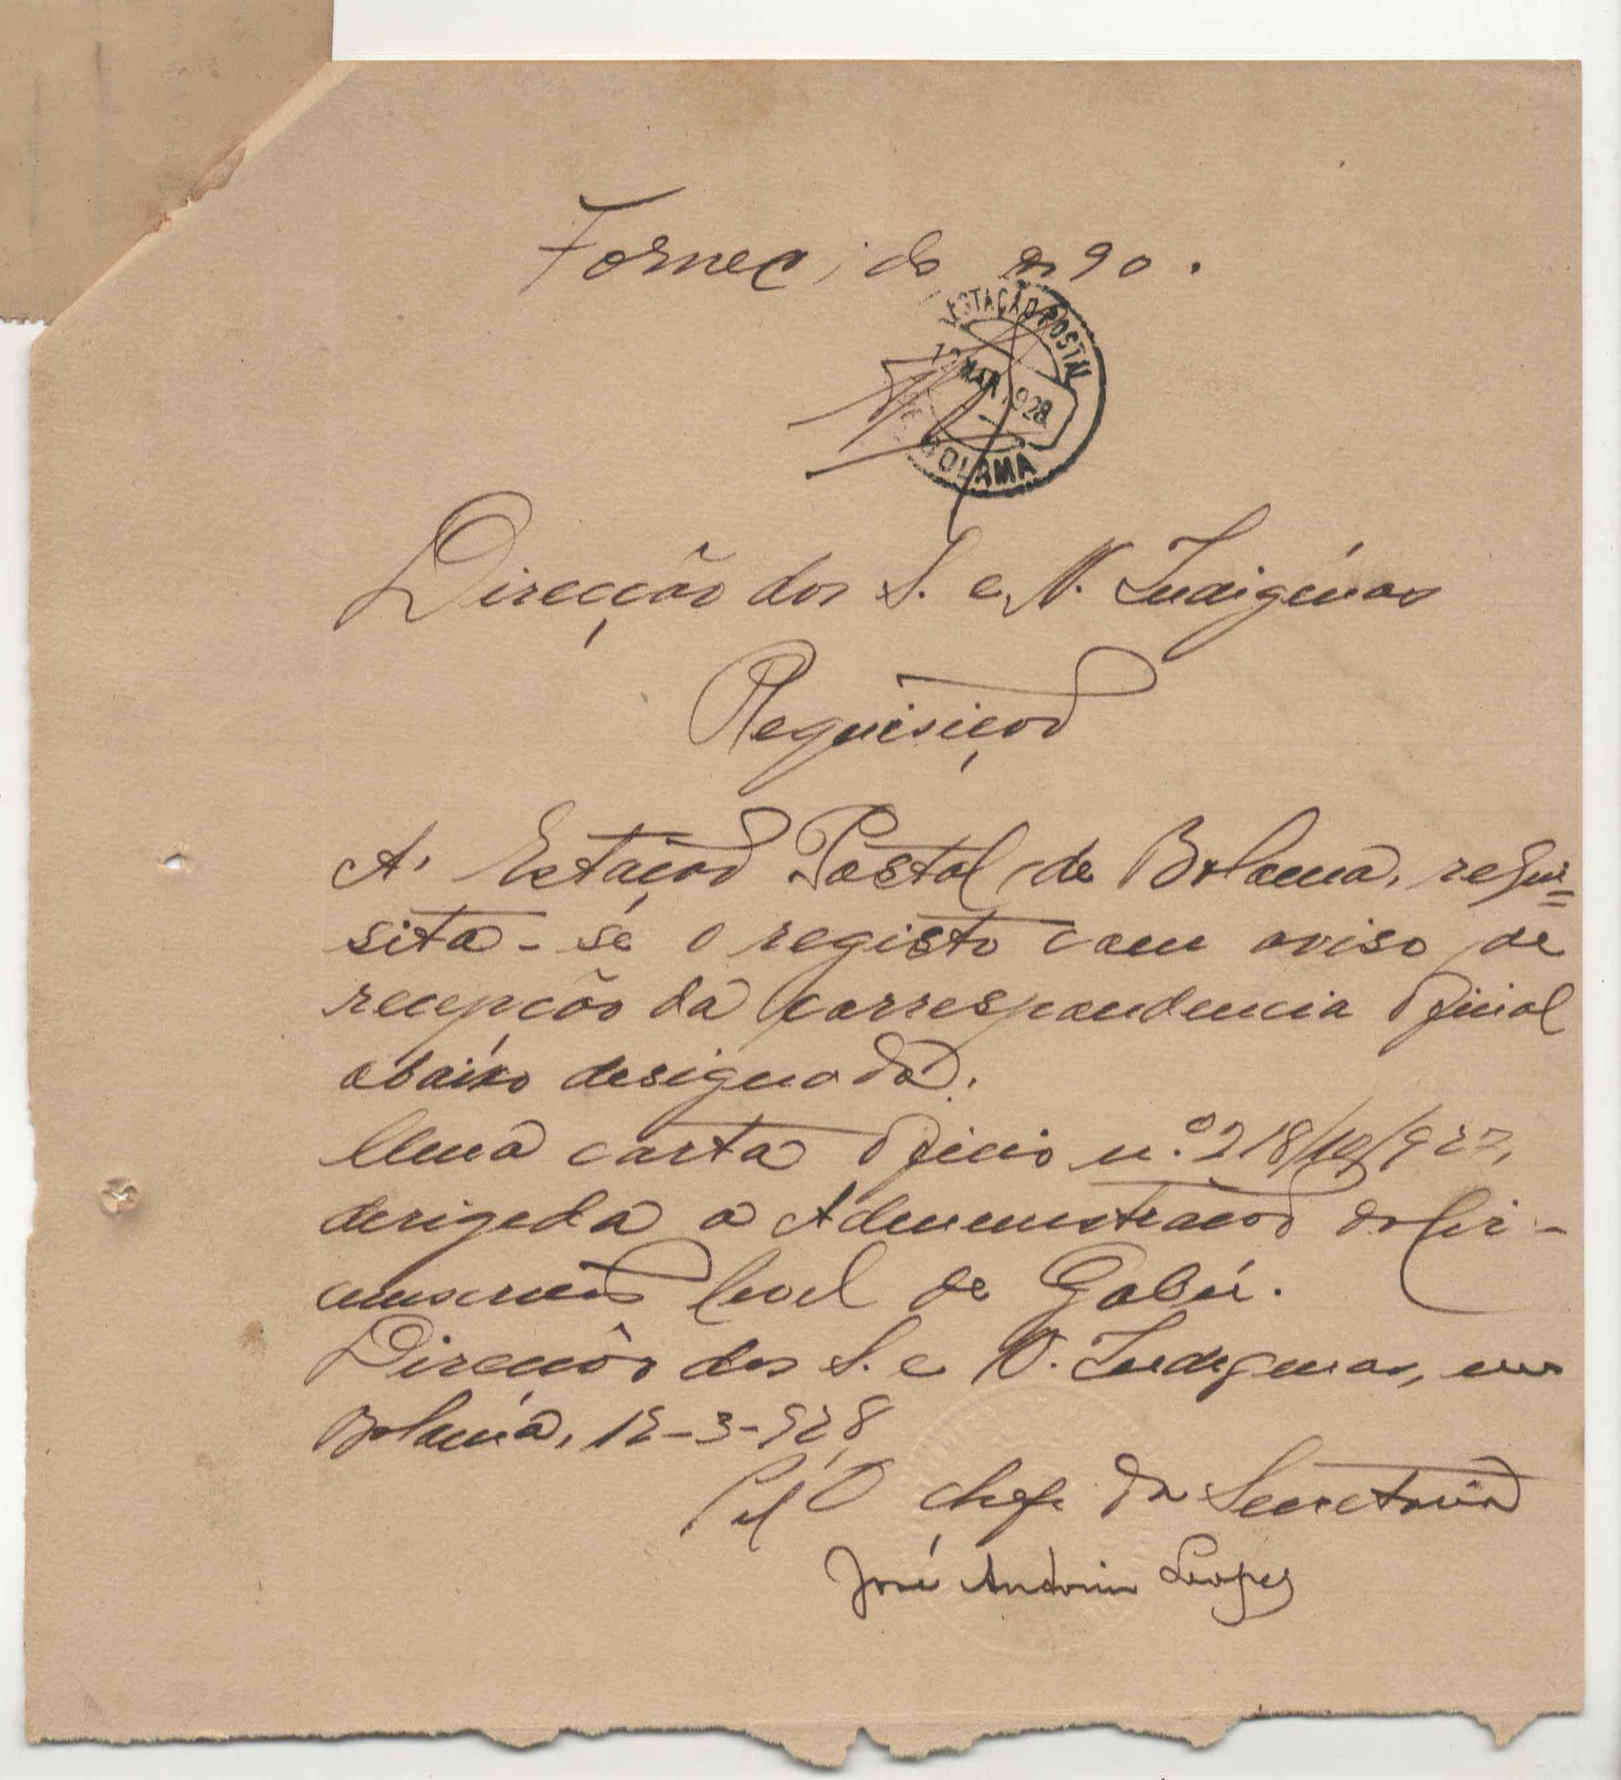 Fornecido 90.
ESTAÇÃO POSTAL
12 MAR 1928
BOLAMA
Direcção dos S. e N. Indigénas
Requisição
A' Estação Postal de Bolama, requi=
sita-se o registo com aviso de
recepção da correspondencia oficial
abaixo designada.
Uma carta oficio n.º 218/10/927,
derigeda a Administração do Cir-
cunscrição Civil de Gabú.
Direcção dos S. e N. Indigenas, em
Bolama, 12-3-928
Pel'O chefe da Secretaria
José Antonio Lopes